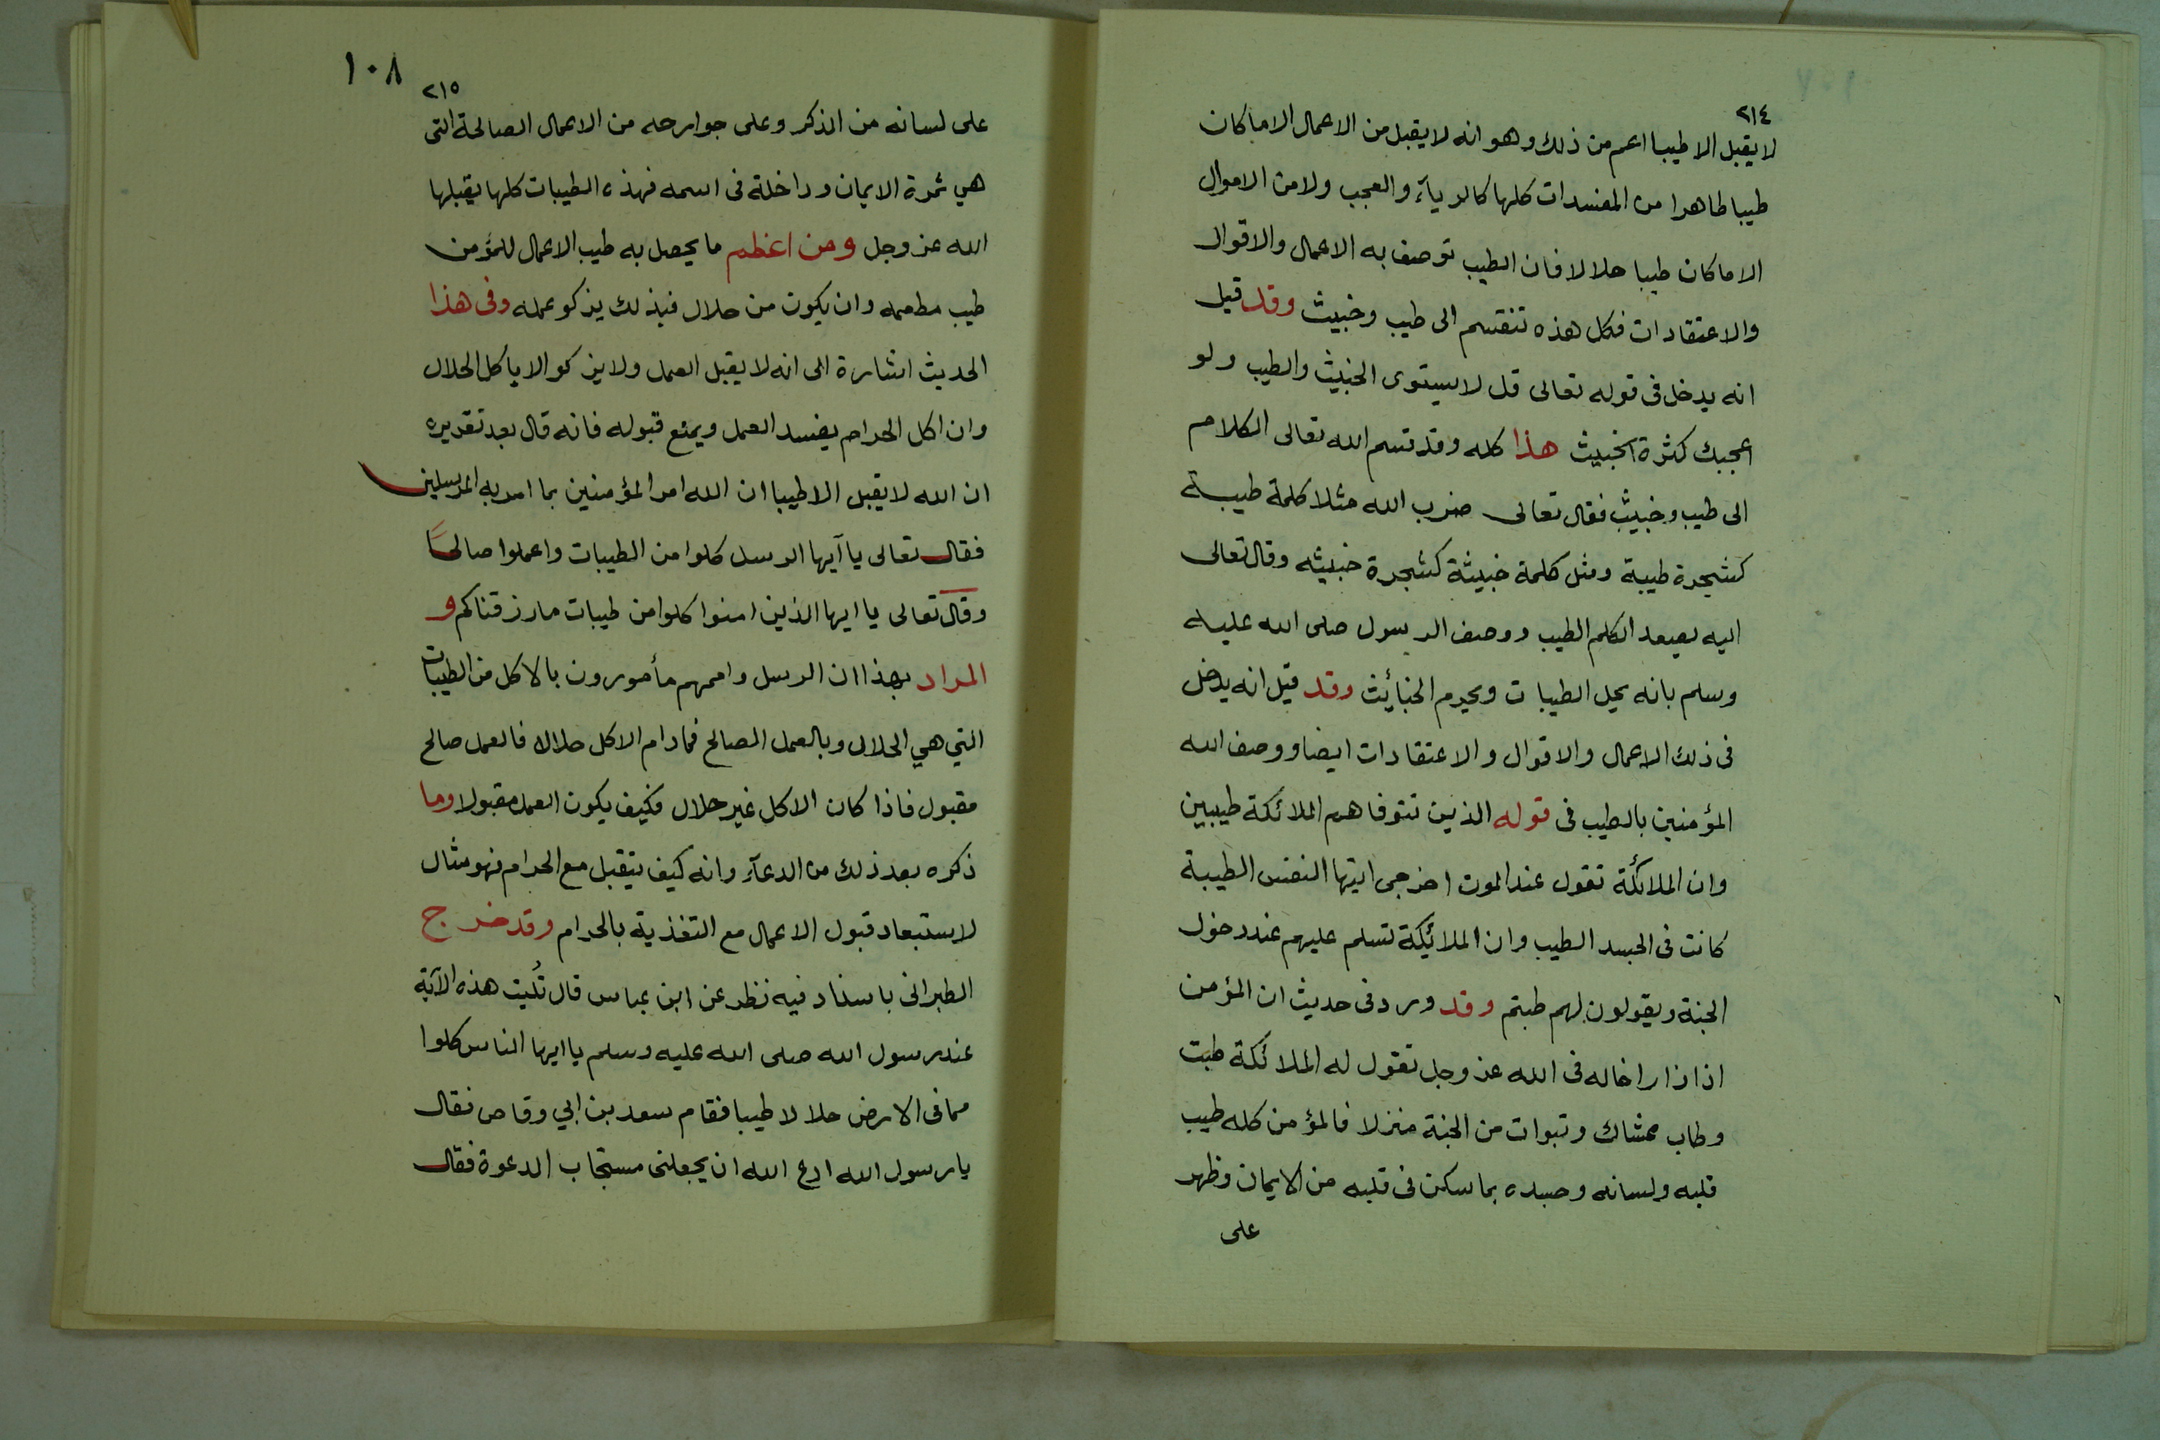 ٢١٤
لا يقبل الا طيبا اعم من ذلك وهو انه لا يقبل من الاعمال الا ما كان
طيبا طاهرا من المفسدات كلها كالرياء والعجب ولا من الاموال
الا ما كان طيبا حلالا فان الطيب توصف به الاعمال والاقوال
والاعتقادات فكل هذه تنقسم الى طيب وخبيث وقد قيل
انه يدخل في قوله تعالى قل لا يستوى الخبيث والطيب ولو
اعجبك كثرة الخبيث هذا كله وقد قسم الله تعالى الكلام
الى طيب وخبيث فقال تعالى ضرب الله مثلا كلمة طيبة
كشجرة طيبة ومثل كلمة خبيثة كشجرة خبيثه وقال تعالى
اليه يصعد الكلم الطيب ووصف الرسول صلى الله عليه
وسلم بانه يحل الطيبات ويحرم الخبائث وقد قيل انه يدخل
في ذلك الاعمال والاقوال والاعتقادات ايضا ووصف الله
المؤمنين بالطيب في قوله الذين تتوفاهم الملائكة طيبين
وان الملائكة تقول عند الموت اخرجى ايتها النفس الطيبة
كانت في الجسد الطيب وان الملائيكة تسلم عليهم عند دخول
الجنة ويقولون لهم طبتم وقد ورد في حديث ان المؤمن
اذا زار اخاله في الله عز وجل تقول له الملائكة طبت
وطاب ممشاك وتبوات من الجنة منزلا فالمؤمن كله طيب
قلبه ولسانه وجسده بما سكن في قلبه من الايمان وظهر
على
١٠٨
٢١٥
على لسانه من الذكر وعلى جوارحه من الاعمال الصالحة التى
هي ثمرة الايمان وداخلة في اسمه فهذه الطيبات كلها يقبلها
الله عز وجل ومن اعظم ما يحصل به طيب الاعمال للمؤمن
طيب مطعمه وان يكون من حلال فبذلك يزكو عمله وفي هذا
الحديث اشارة الى انه لا يقبل العمل ولا يزكو الا باكل الحلال
وان اكل الحرام يفسد العمل ويمنع قبوله فانه قال بعد تقديره
ان الله لا يقبل الا طيبا ان الله امر المؤمنين بما امر به المرسلين
فقال تعالى يا آيها الرسل كلوا من الطيبات واعملوا صالحا
وقال تعالى يا ايها الذين امنوا كلوا من طيبات ما رزقناكم و
المراد بهذا ان الرسل واممهم مأمورون بالاكل من الطيبات
التي هي الحلال وبالعمل الصالح فمادام الاكل حلالا فالعمل صالح
مقبول فاذا كان الاكل غير حلال فكيف يكون العمل مقبولا وما
ذكره بعد ذلك من الدعآء وانه كيف يتقبل مع الحرام فهو مثال
لاستبعاد قبول الاعمال مع التغذية بالحرام وقد خرج
الطبرانى باسناد فيه نظر عن ابن عباس قال تُليت هذه الآية
عند رسول الله صلى الله عليه وسلم يا ايها الناس كلوا
مما في الارض حلالا طيبا فقام سعد بن ابي وقاص فقال
يا رسول الله ادع الله ان يجعلنى مستجاب الدعوة فقال